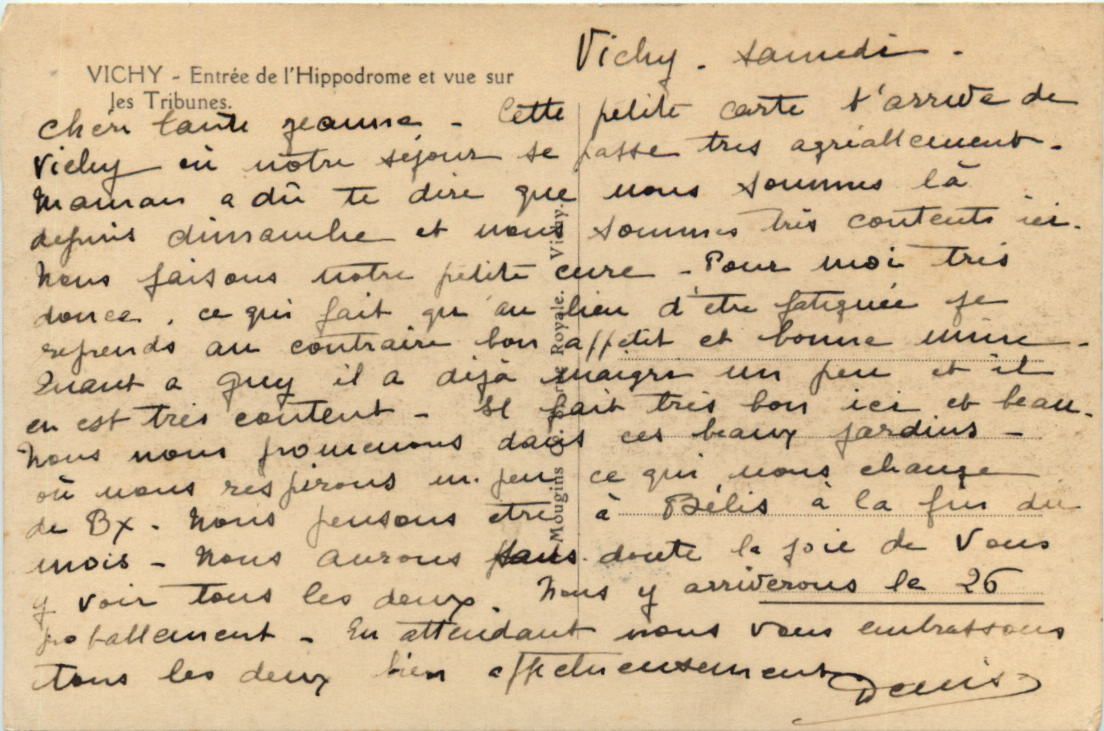 Vichy - samedi -
VICHY - Entrée de l'Hippodrome et vue sur
les Tribunes.
Chère tante Jeanne - Cette petite carte t'arrive de
Vichy où notre séjour se passe très agréablement -
Maman a dû te dire que nous sommes là
depuis dimanche et nous sommes très contents ici.
Nous faisons notre petite cure - Pour moi très
douce, ce qui fait qu'au lieu d'être fatiguée je
reprends au contraire bon appétit et bonne mine -
Quant a Guy il a déjà maigri un peu et il
en est très content - Il fait très bon ici et beau -
Nous nous promenons dans ces beaux jardins -
où nous respirons un peu ce qui nous change
de Bx - Nous pensons être à Bélis à la fin du
mois - Nous aurons sans doute la joie de Vous
y voir tous les deux. Nous y arriverons le 26
probablement - En attendant nous vous embrassons
tous les deux bien affectueusement
Denis
Mougins Royale. Vichy.